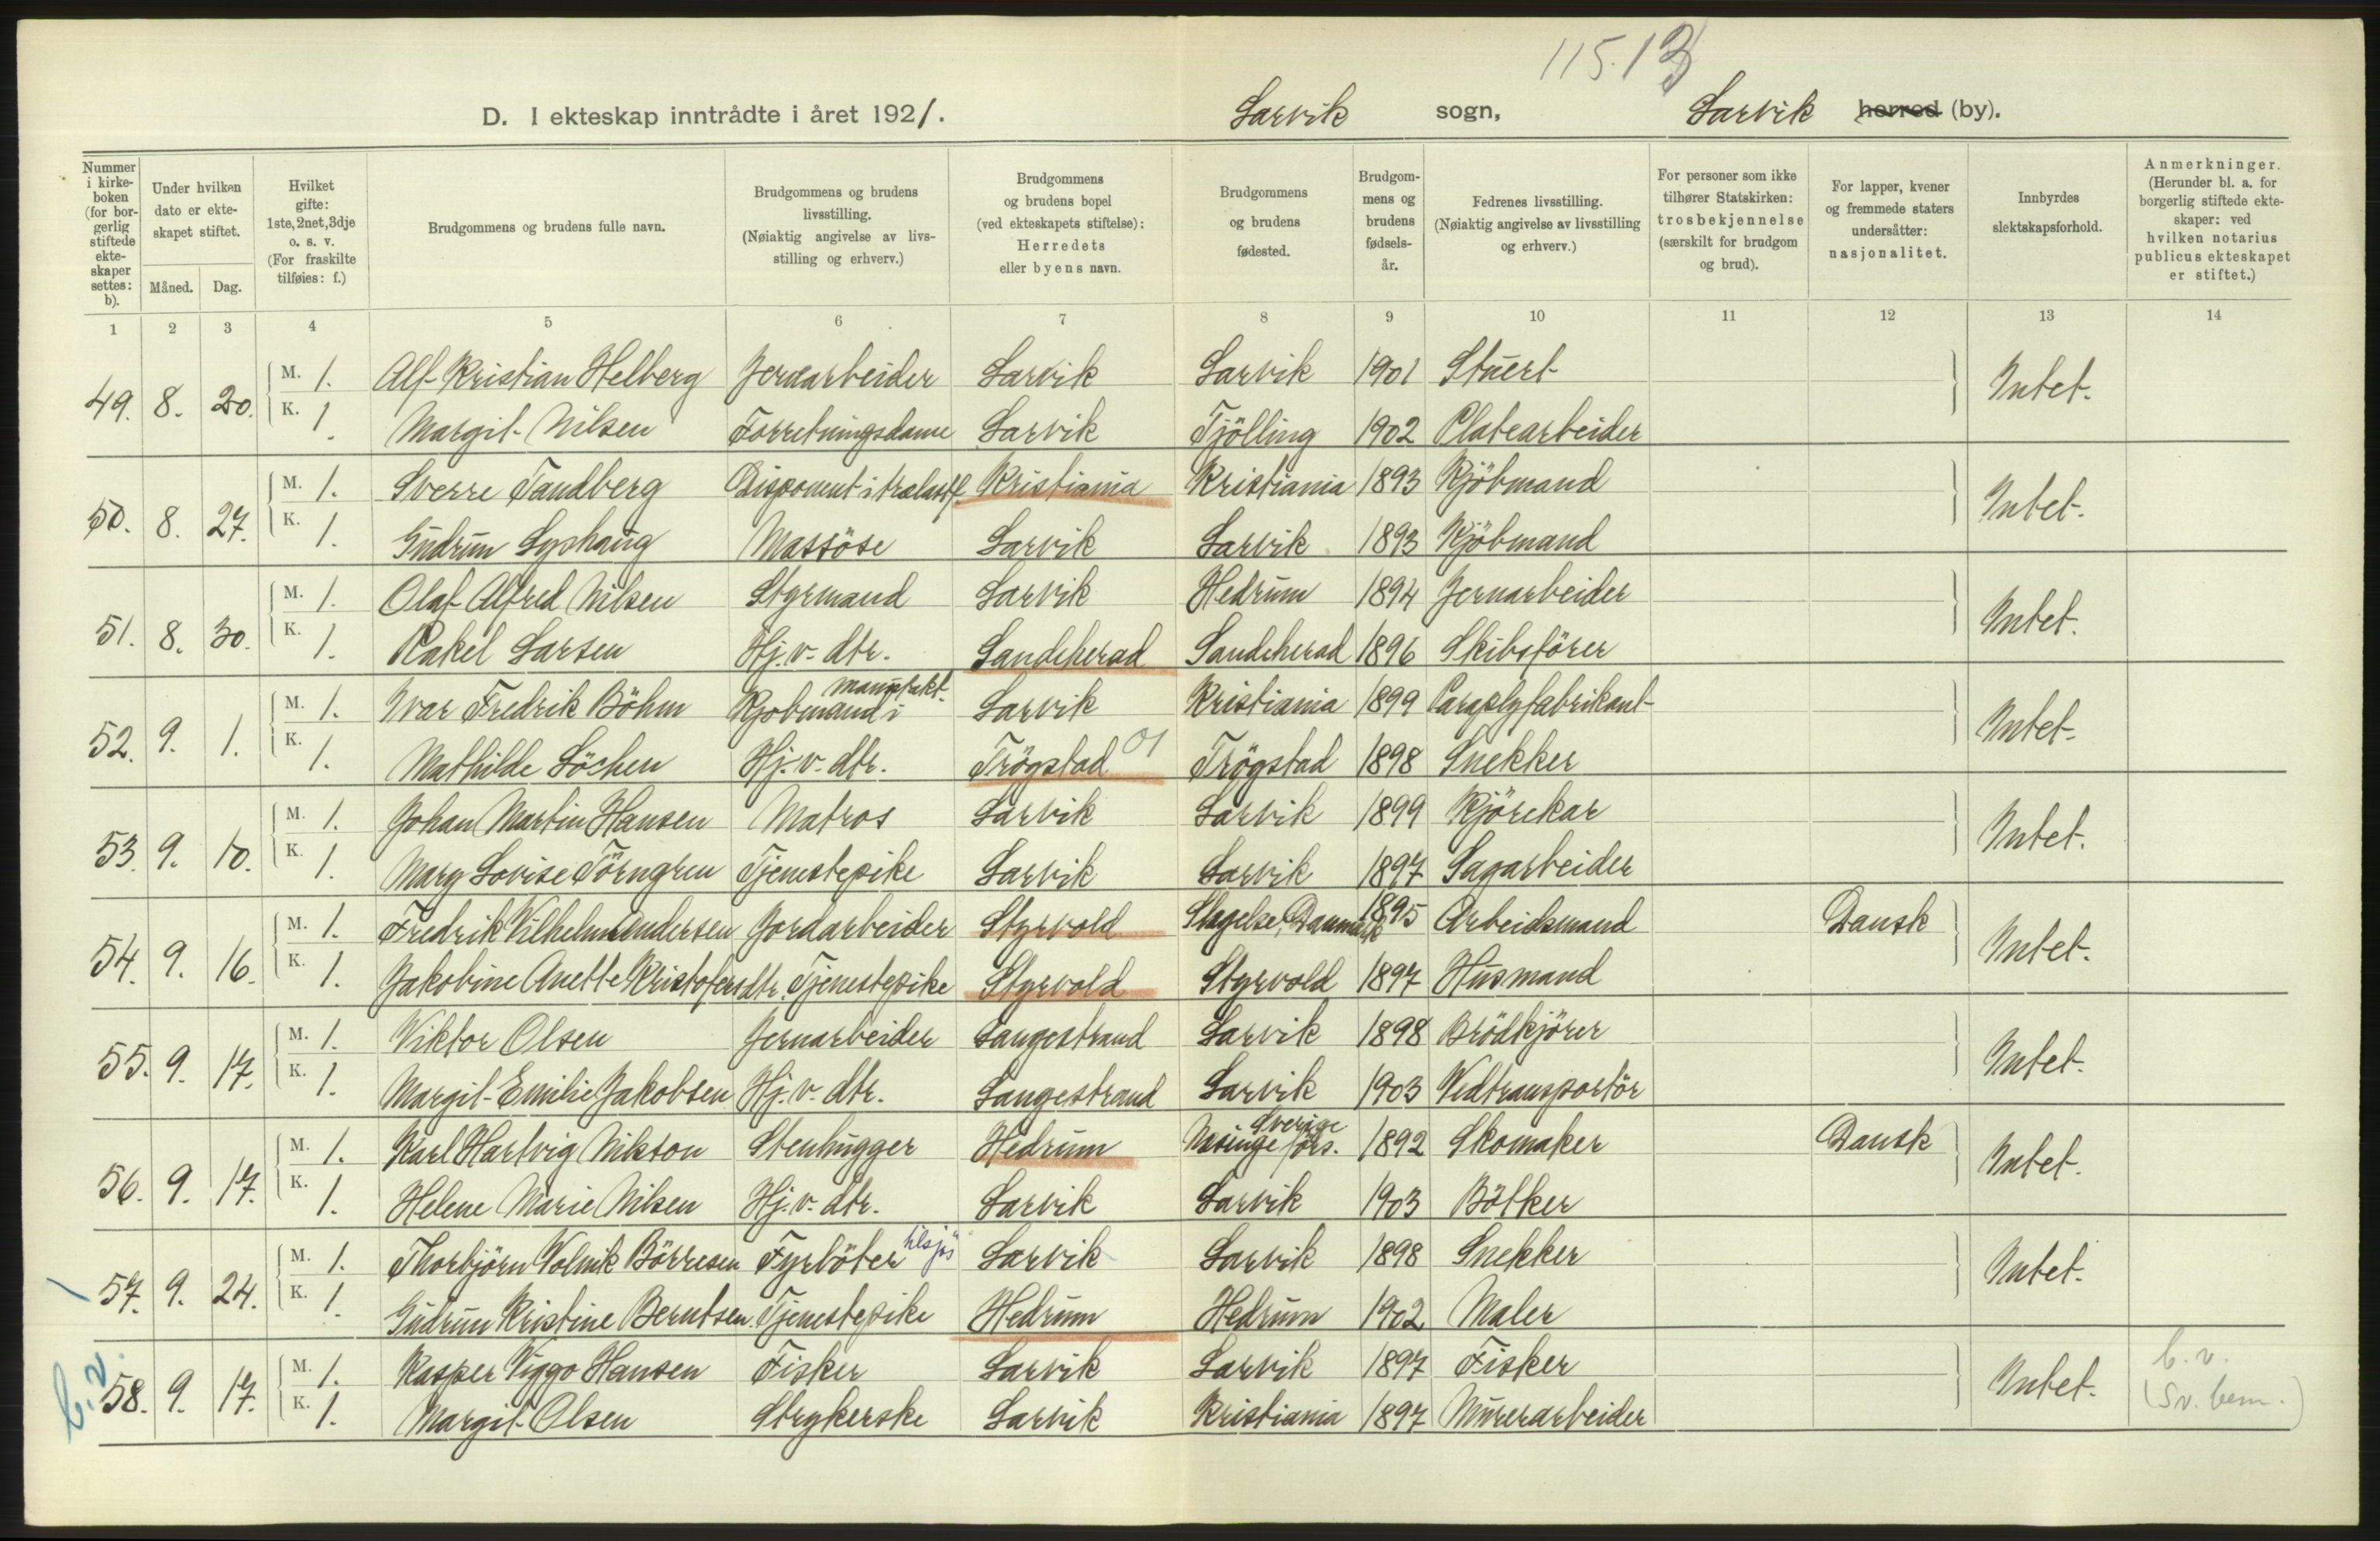 115.13
D. I ekteskap inntrådte i året 1921. Larvik sogn, Larvik herred (by).
Nummer i kirke- boken (for bor- gerlig stiftede ekte- skaper settes: b).
Under hvilken dato er ekte- skapet stiftet.
Måned. Dag.
Hvilket gifte: 1ste, 2net, 3dje o. s. v. (For fraskilte tilføies: f.)
Brudgommens og brudens fulle navn.
Brudgommens og brudens livsstilling. (Nøiaktig angivelse av livs- stilling og erhverv.)
Brudgommens og brudens bopel (ved ekteskapets stiftelse): Herredets eller byens navn.
Brudgommens og brudens fødested.
Brudgom- mens og brudens fødsels- år.
Fedrenes livsstilling. (Nøiaktig angivelse av livsstilling og erhverv.)
For personer som ikke tilhører Statskirken: trosbekjennelse (særskilt for brudgom og brud).
For lapper, kvener og fremmede staters undersåtter: nasjonalitet.
Innbyrdes slektskapsforhold.
Anmerkninger. (Herunder bl. a. for borgerlig stiftede ekte- skaper: ved hvilken notarius publicus ekteskapet er stiftet.)
1 2 3 4 5 6 7 8 9 10 11 12 13 14
49. 8. 20. M. 1. Alf Kristian Helberg Jernarbeider Larvik Larvik 1901 Stuert Intet.
K. 1. Margit Nilsen Forretningsdame Larvik Tjölling 1902 Platearbeider
50. 8. 27. M. 1. Sverre Tandberg Disponent i trælastf. Kristiania Kristiania 1893 Kjöbmand Intet.
K. 1. Gudrun Lyshaug Massöse Larvik Larvik 1893 Kjöbmand
51. 8. 30. M. 1. Olaf Alfred Nilsen Styrmand Larvik Hedrum 1894 Jernarbeider Intet.
K. 1. Rakel Larsen Hj. v. dtr. Sandeherad Sandeherad 1896 Skibsförer
52. 9. 1. M. 1. Ivar Fredrik Böhm Kjobmand i manufakt. Larvik Kristiania 1899 Paraplyfabrikant Intet.
K. 1. Mathilde Löchen Hj. v. dtr. Trögstad 01 Trögstad 1898 Snekker
53. 9. 10. M. 1. Johan Martin Hansen Matros Larvik Larvik 1899 Kjörekar Intet.
K. 1. Mary Lovise Törngren Tjenestepike Larvik Larvik 1897 Sagarbeider
54. 9. 16. M. 1. Fredrik Vilhelm Andersen Jordarbeider Styrvold Slagelse, Danmark 1895 Arbeidsmand Dansk Intet.
K. 1. Jakobine Anette Kristofersdtr. Tjenestepike Styrvold Styrvold 1897 Husmand
55. 9. 17. M. 1. Viktor Olsen Jernarbeider Langestrand Larvik 1898 Brödkjörer Intet.
K. 1. Margit Emilie Jakobsen Hj. v. dtr. Langestrand Larvik 1903 Vedtransportör
56. 9. 17. M. 1. Karl Hartvig Nikson Stenhugger Hedrum förs. Sverige 1892 Skomaker Dansk Intet.
K. 1. Helene Marie Nilsen Hj. v. dtr. Larvik Larvik 1903 Bötker
57. 9. 24. M. 1. Thorbjörn Volmik Börresen Fyrböter tilsjøs Larvik Larvik 1898 Snekker Intet.
K. 1. Gudrun Kristine Berntsen Tjenestepike Hedrum Hedrum 1902 Maler
b.v. 58. 9. 17. M. 1. Kasper Viggo Hansen Fisker Larvik Larvik 1897 Fisker Intet. b. v.
K. 1. Margit Olsen Strykerske Larvik Kristiania 1897 Murerarbeider (Sv. bem.)